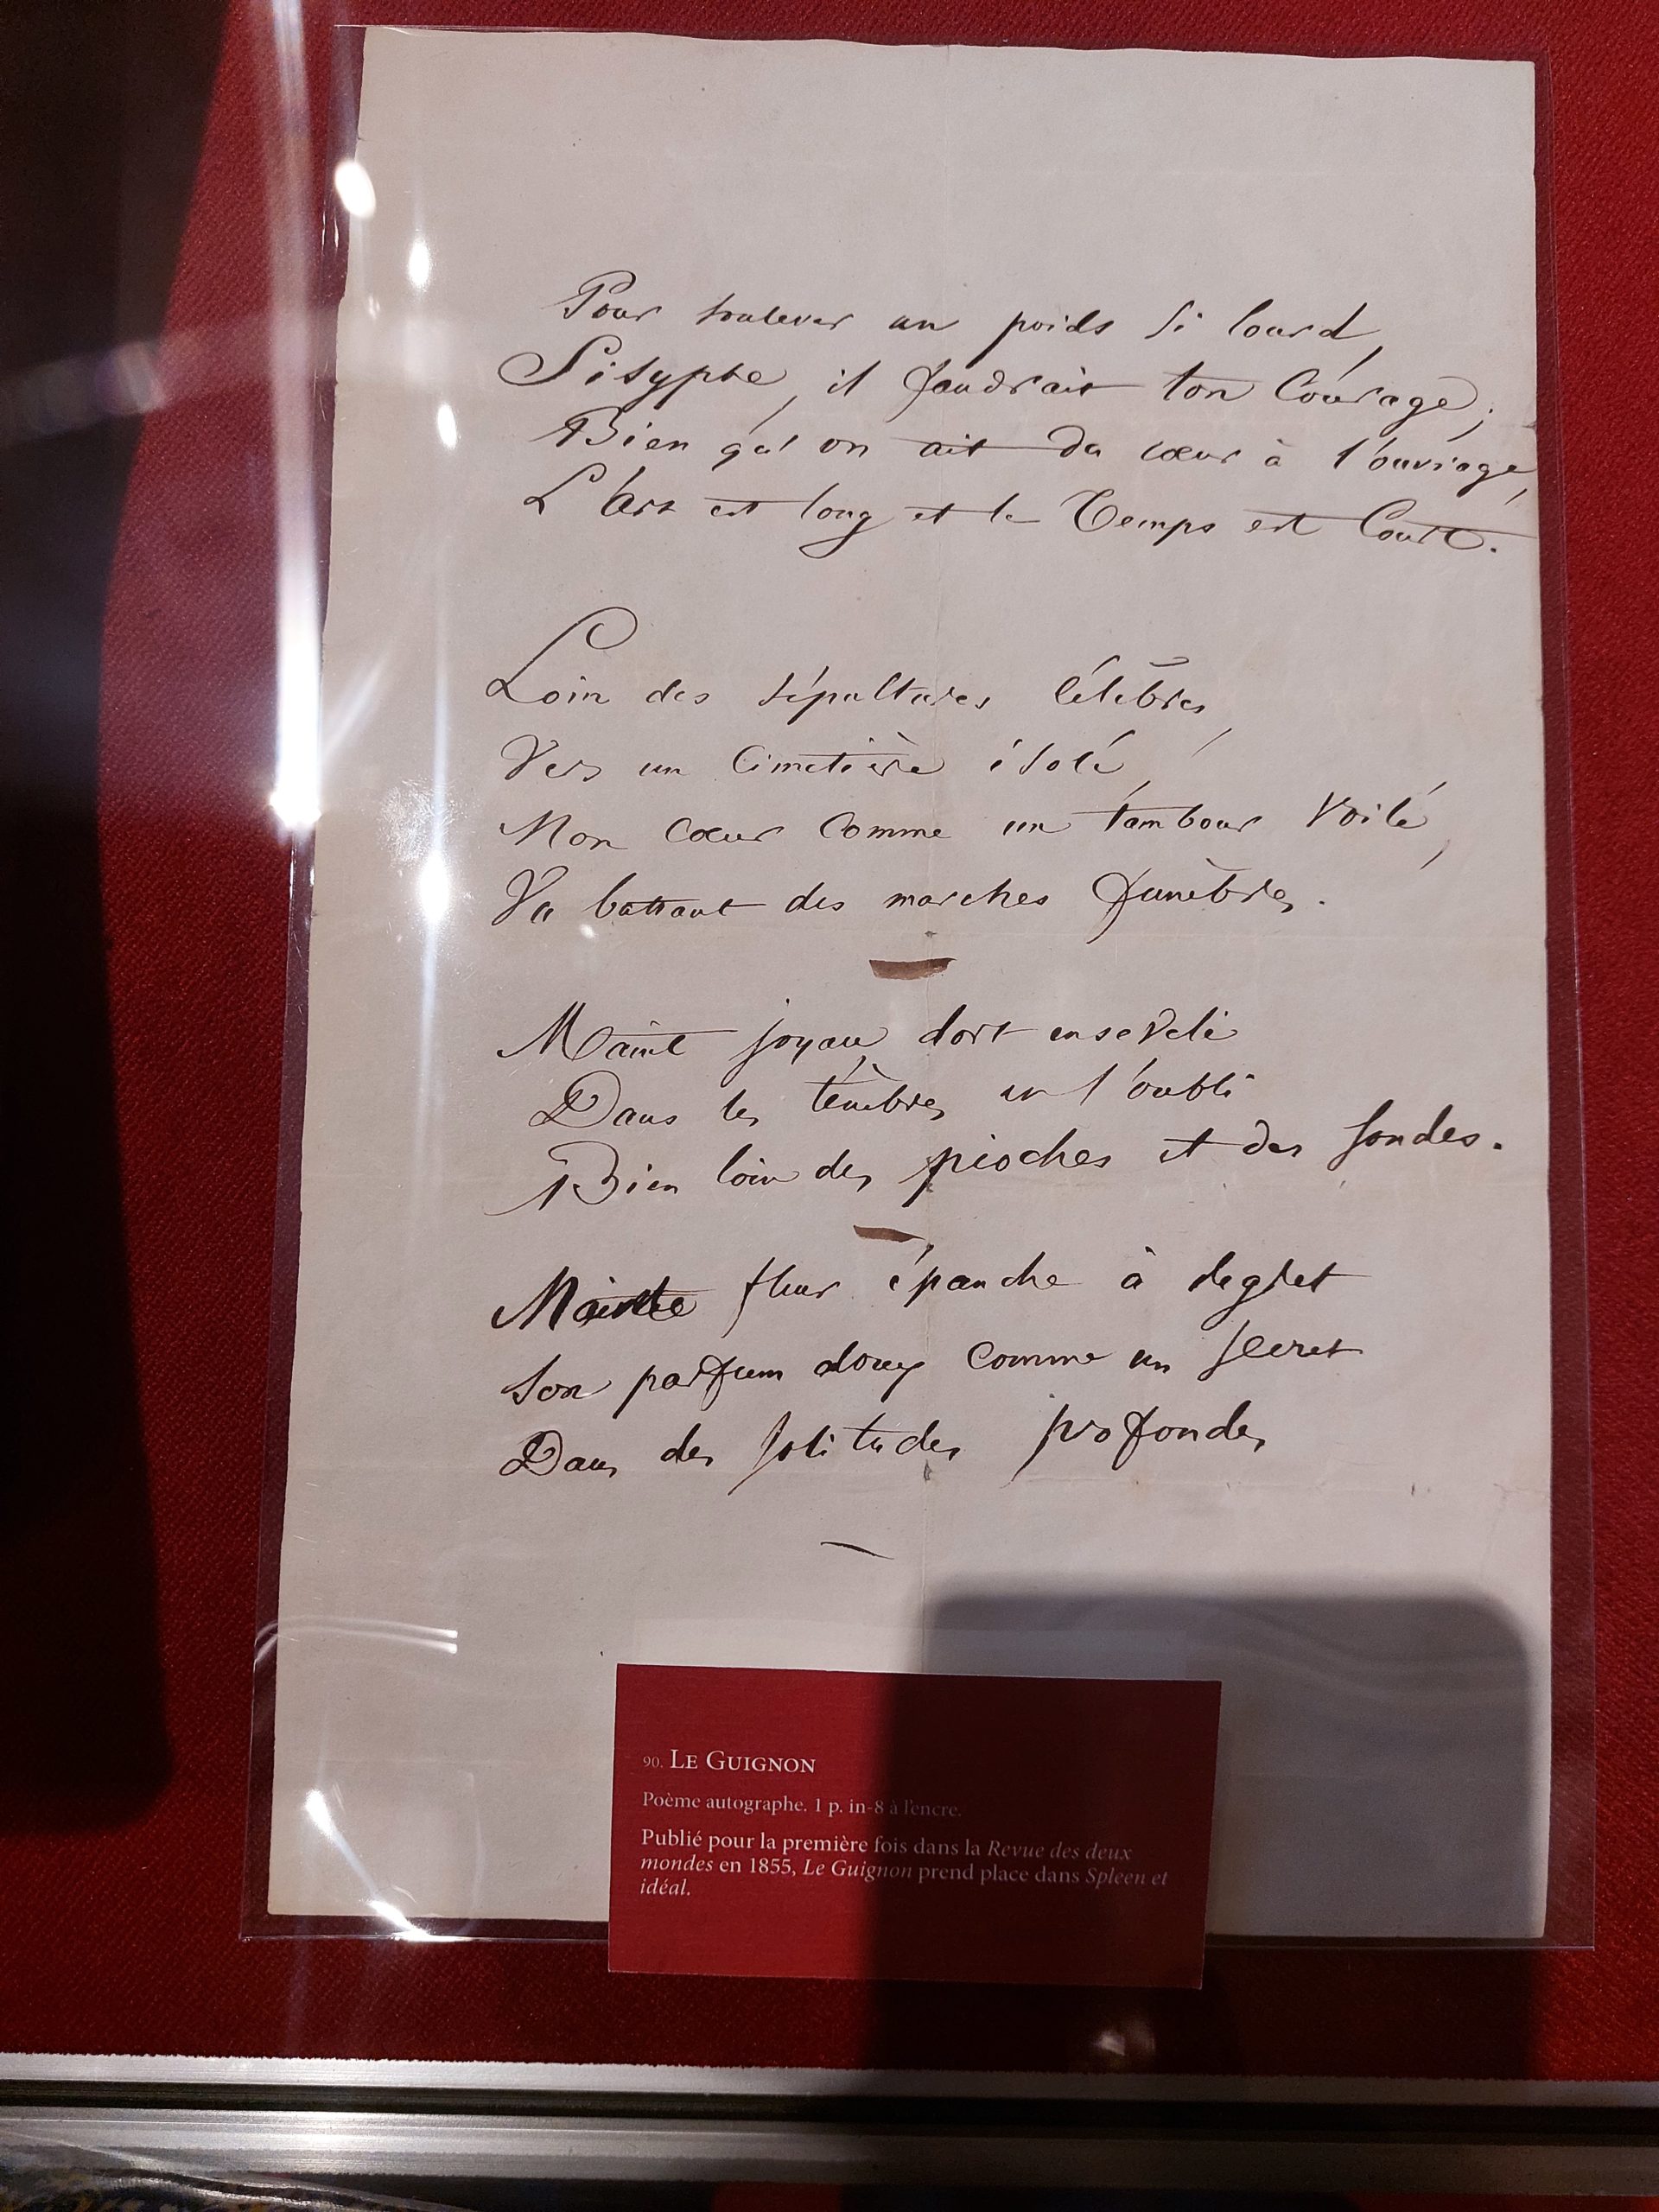 Pour soulever un poids si lourd,
Sisyphe, il faudrait ton Courage;
Bien qu'on ait du cœur à l'ouvrage,
L'Art est long et le Temps est Court.
Loin des sépultures Célèbres,
Vers un Cimetière isolé,
Mon Cœur Comme un tambour Voilé,
Va battant des marches funèbres.
Maint joyau dort enseveli
Dans les ténèbres et l'oubli
Bien loin des pioches et des sondes.
Mainte fleur épanche à regret
Son parfum doux Comme un Secret
Dans des solitudes profondes
90. LE GUIGNON
Poème autographe. 1 p. in-8 à l'encre.
Publié pour la première fois dans la Revue des deux
mondes en 1855, Le Guignon prend place dans Spleen et
idéal.